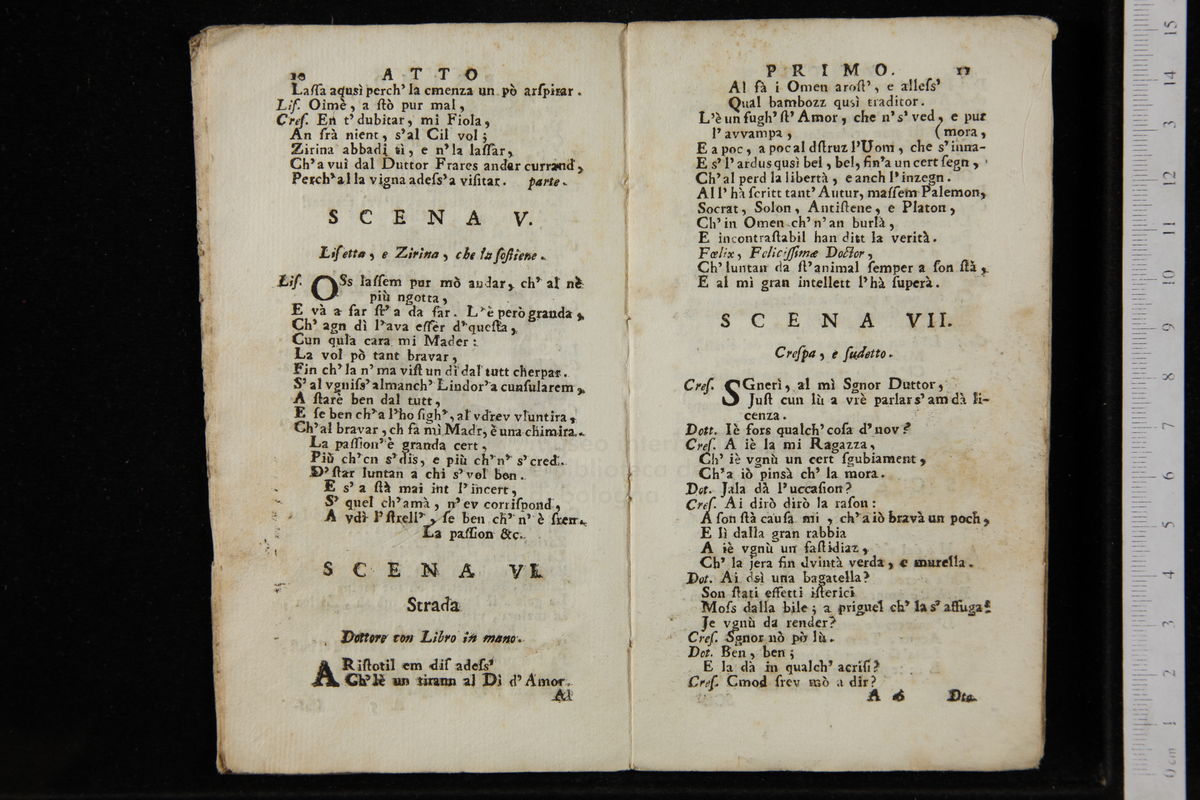 10 ATTO
Lassa aqusì perch' la cmenza un pò arspirar.
Lis. Oimè, a stò pur mal,
Cres. En t' dubitar, mi Fiola,
An srà nient, s'al Cil vol;
Zirina abbadi tì, e n' la lassar,
Ch'a vuì dal Duttor Frares andar currand,
Perch' al la vigna adess' a visitar. parte.
SCENA V.
Lisetta, e Zirina, che la sostiene.
Lis. OSs lassem pur mò andar, ch' al nè
più ngotta,
E và a far st' a da far. L'è però granda,
Ch' agn dì l'ava esser d' questa,
Cun qula cara mi Mader:
La vol pò tant bravar,
Fin ch' la n' ma vist un dì dal tutt cherpar.
S' al vgniss' almanch' Lindor' a cunsularem,
A starè ben dal tutt,
E se ben ch' a l'ho sigh', al vdrev vluntira,
Ch' al bravar, ch fà mì Madr, è una chimira.
La passion' è granda cert,
Più ch'en s' dis, e più ch'n' s' cred.
D' star luntan a chi s' vol ben.
E s' a stà mai int l'incert,
S' quel ch'amà, n' ev corrispond,
A vdì l' strell', se ben ch' n' è sren.
La passion &c.
SCENA VI.
Strada
Dottore con Libro in mano.
ARistotil em dis adess'
Ch' lè un tirann al Dì d' Amor.
Al
PRIMO. 11
Al fà i Omen arost', e alless'
Qual bambozz qusì traditor.
L'è un fugh' st' Amor, che n' s' ved, e pur
l' avvampa, (mora,
E a poc, a poc al dstruz l'Uom, che s' inna-
E s' l' ardus qusì bel, bel, fin' a un cert segn,
Ch' al perd la libertà, e anch l' inzegn.
Al l' hà scritt tant' Autur, massem Palemon,
Socrat, Solon, Antistene, e Platon,
Ch' in Omen ch' n' an burlà,
E incontrastabil han ditt la verità.
Fœlix, Felicissimæ Doctor,
Ch' luntan da st' animal semper a son stà,
E al mì gran intellett l' hà superà.
SCENA VII.
Crespa, e sudetto.
Cres. SGnerì, al mì Sgnor Duttor,
Just cun lù a vrè parlar s' am dà li-
cenza.
Dott. Iè fors qualch' cosa d' nov?
Cres. A iè la mi Ragazza,
Ch' iè vgnù un cert sgubiament,
Ch'a iò pinsà ch' la mora.
Dot. Jala dà l'uccasion?
Cres. Ai dirò dirò la rason:
A son stà causa mi, ch' a iò bravà un poch,
E lì dalla gran rabbia
A iè vgnù un fastidiaz,
Ch' la jera fin dvintà verda, e murella.
Dot. Ai dsì una bagatella?
Son stati effetti isterici
Moss dalla bile; a priguel ch' la s' affuga!
Je vgnù da render?
Cres. Sgnor nò pò lù.
Dot. Ben, ben;
E la dà in qualch' acrisi?
Cres. Cmod srev mò a dir?
A 6 Dto.